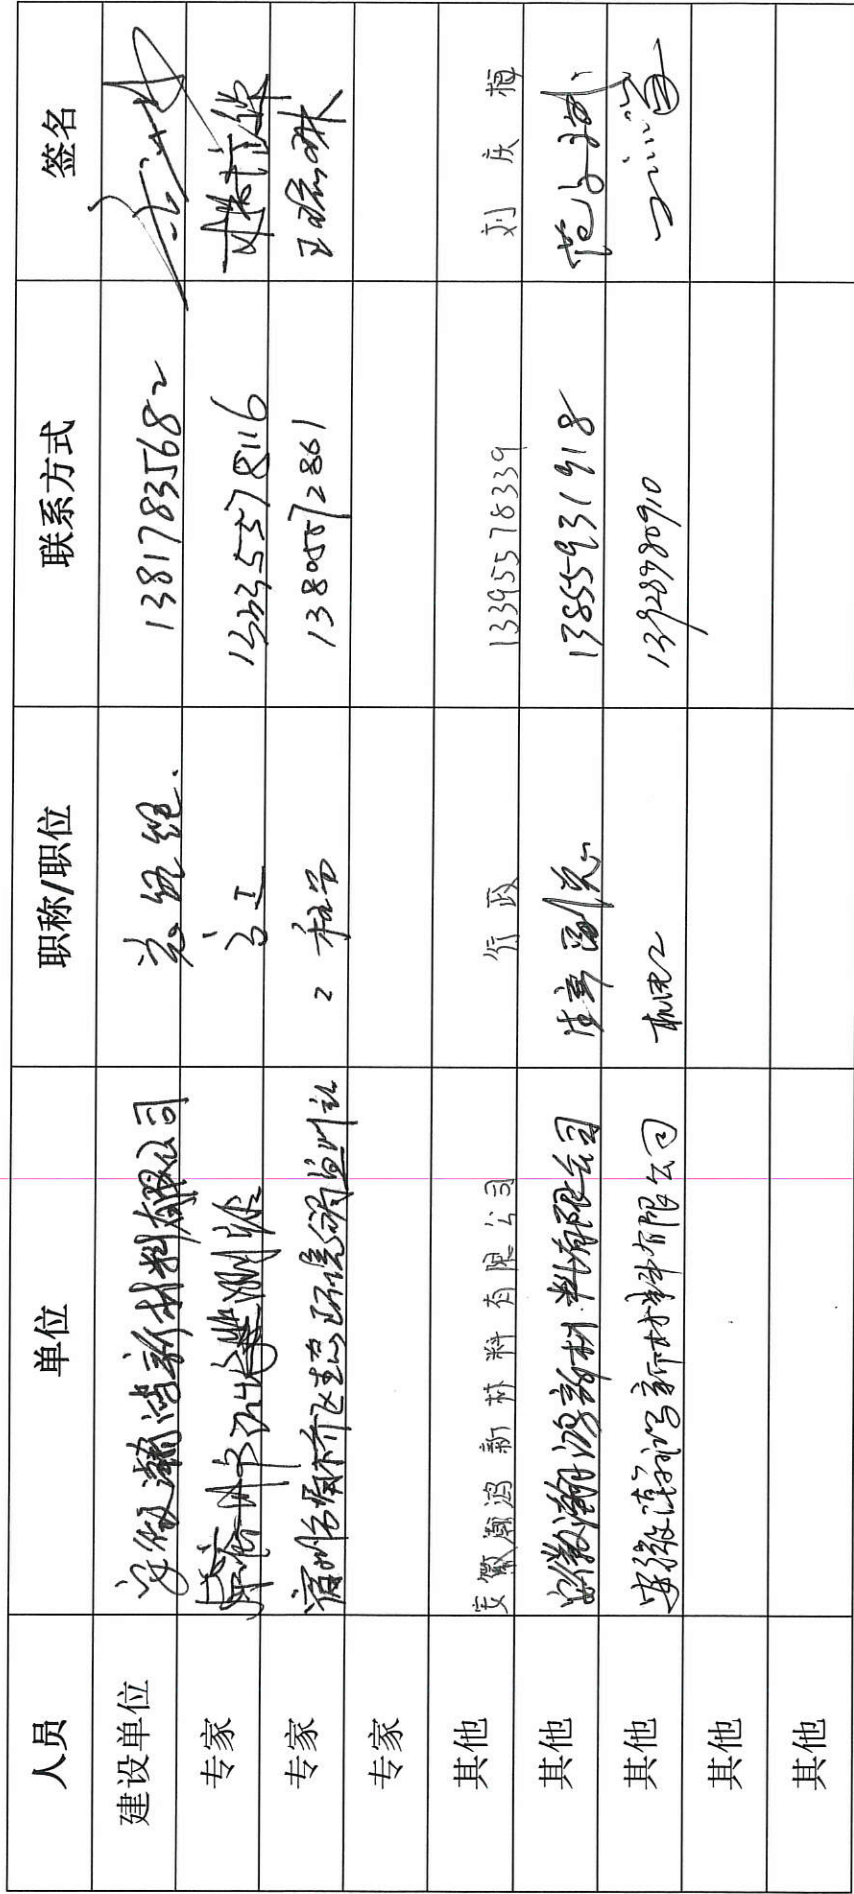 人员 单位 职称/职位 联系方式 签名
建设单位 安徽瀚鸿新材料有限公司 总经理 13817835682
专家 环境监测站 高工 13335578116
专家 宿州市埇桥区生态环境分局监测站 工程师 13805572861
专家
其他 安徽瀚鸿新材料有限公司 行政 13395578339 刘庆梅
其他 安徽瀚鸿新材料有限公司 生产副总 13855931918
其他 安徽瀚鸿新材料有限公司 机电 13928980910
其他
其他